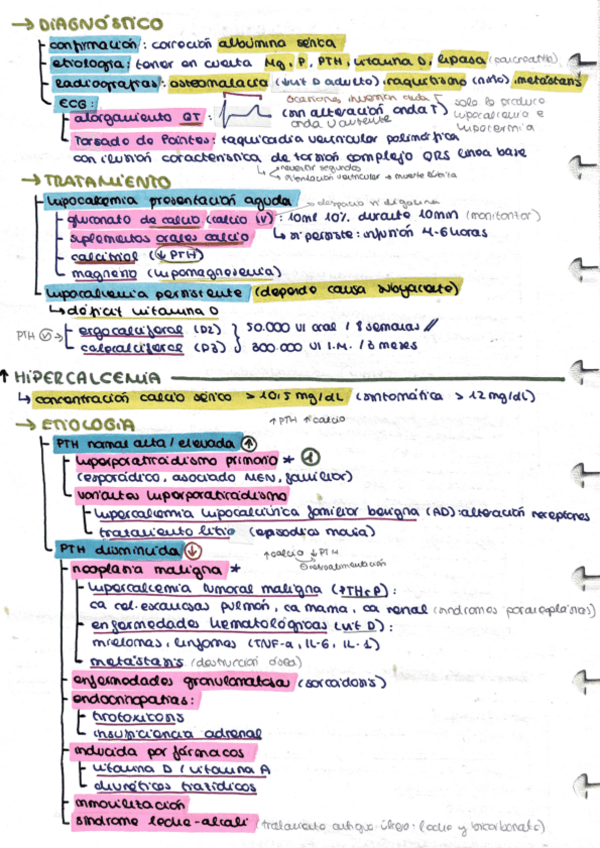 → DIAGNÓSTICO
confirmación: corrección albúmina sérica
etiología: tener en cuenta Mg, P, PTH, vitamina D, lipasa (pancreatitis)
Radiografías: osteomalacia (↓vit D adulto), raquitismo (niño), metástasis
ECG:
alargamiento QT: con alteración onda T
ocasiones inversión onda T
onda U ausente
solo lo produce hipocalcemia e hipotermia
Torsade de Pointes: taquicardia ventricular polimórfica
con ilusión característica de torsión complejo QRS línea base
↳ revertir segundos
↳ fibrilación ventricular → muerte súbita
→ TRATAMIENTO
hipocalcemia presentación aguda
→ despacio si digoxina
gluconato de calcio (calcio IV): 10ml 10% durante 10min (monitorizar)
suplementos orales calcio ↳ si persiste: infusión 4-6 horas
calcitriol (↓ PTH)
magnesio (hipomagnesemia)
hipocalcemia persistente (depende causa subyacente)
↳ déficit vitamina D
PTH → ergocalciferol (D2) } 50.000 UI oral / 8 semanas //
colecalciferol (D3) } 300.000 UI I.M. / 3 meses
↑ HIPERCALCEMIA
↳ concentración calcio sérico > 10,5 mg/dL (sintomática > 12 mg/dL)
→ ETIOLOGIA
↑ PTH ↑ calcio
PTH normal alta / elevada ↑
hiperparatiroidismo primario * ①
(esporádico, asociado MEN, familiar)
variantes hiperparatiroidismo
hipercalcemia hipocalciúrica familiar benigna (AD): alteración receptores
tratamiento litio (episodios manía)
PTH disminuida ↓
↑ calcio ↓ PTH
retroalimentación
neoplasia maligna *
hipercalcemia tumoral maligna (PTHrP):
ca. cel. escamosas pulmón, ca mama, ca renal (síndromes paraneoplásicos)
enfermedades hematológicas (vit D):
mielomas, linfomas (TNF-a, IL-6, IL-1)
metástasis (destrucción ósea)
enfermedades granulomatosa (sarcoidosis)
endocrinopatías:
tirotoxicosis
insuficiencia adrenal
inducida por fármacos
vitamina D / vitamina A
diuréticos tiazídicos
inmovilización
síndrome leche-alcali (tratamiento antiguo úlcera: leche y bicarbonato)